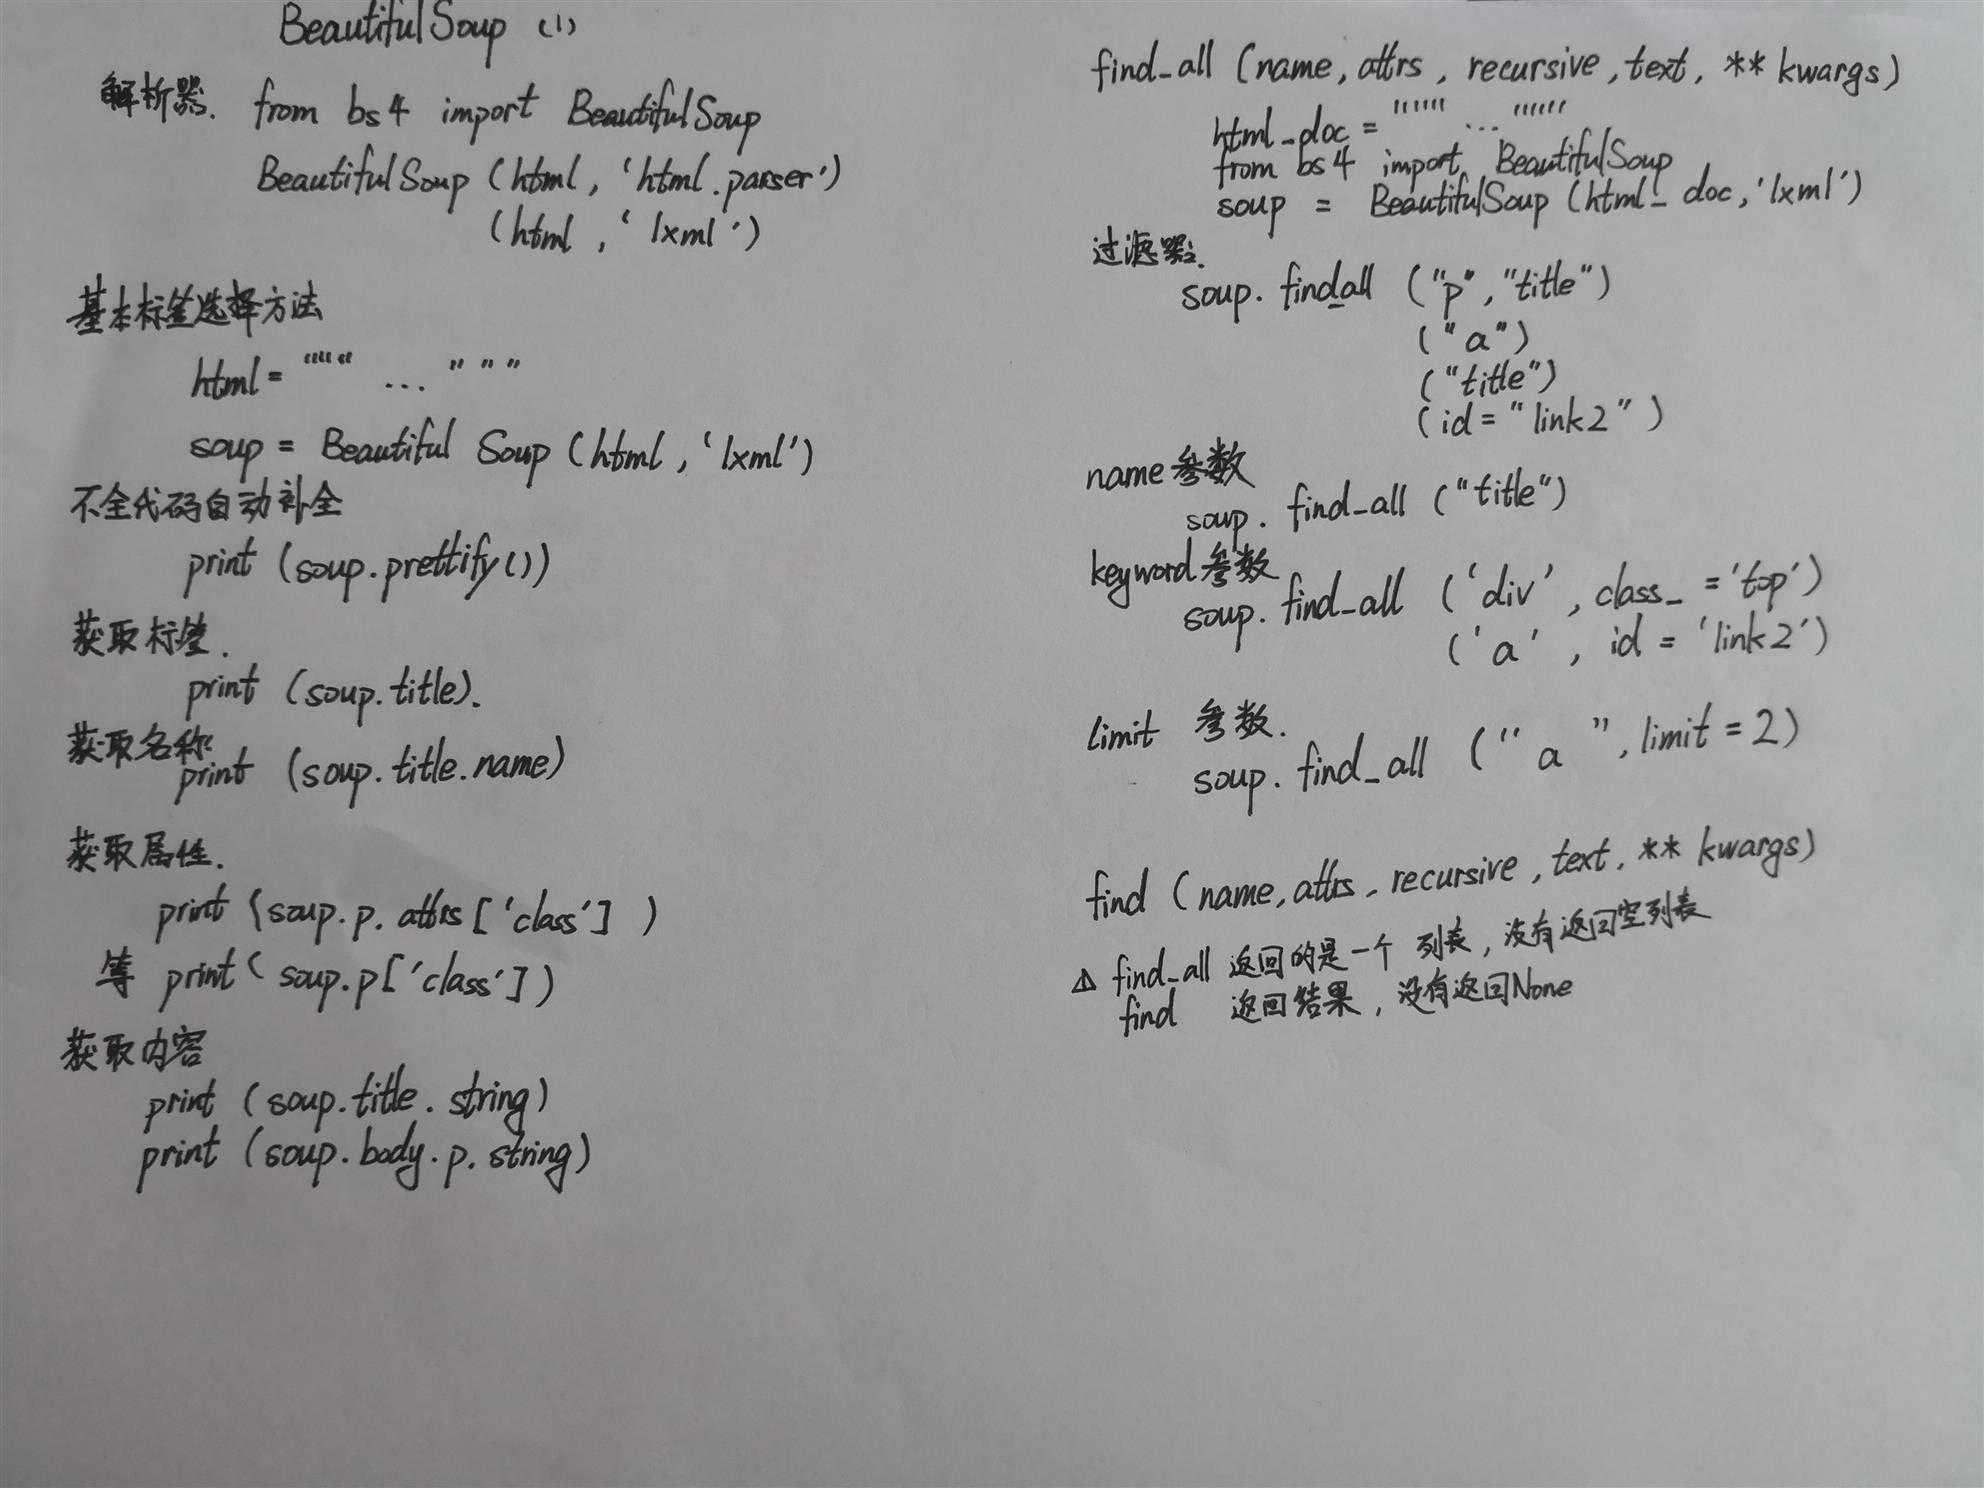 BeautifulSoup (1)
解析器. from bs4 import BeautifulSoup
BeautifulSoup (html, 'html.parser')
(html, 'lxml')
基本标签选择方法
html = """ ... """
soup = Beautiful Soup (html, 'lxml')
不全代码自动补全
print (soup.prettify())
获取标签.
print (soup.title).
获取名称
print (soup.title.name)
获取属性.
print (soup.p.attrs['class'] )
等 print( soup.p['class'])
获取内容
print (soup.title.string)
print (soup.body.p.string)
find_all (name, attrs, recursive, text, ** kwargs)
html_doc = """ ... """
from bs4 import BeautifulSoup
soup = BeautifulSoup (html_doc, 'lxml')
过滤器:
soup. find_all ("p", "title")
("a")
("title")
(id="link2")
name参数
soup. find_all ("title")
keyword参数
soup. find_all ('div', class_='top')
('a', id = 'link2')
limit 参数.
soup. find_all (" a ", limit = 2)
find (name, attrs, recursive, text, ** kwargs)
⚠ find_all 返回的是一个 列表, 没有返回空列表
find 返回结果, 没有返回None